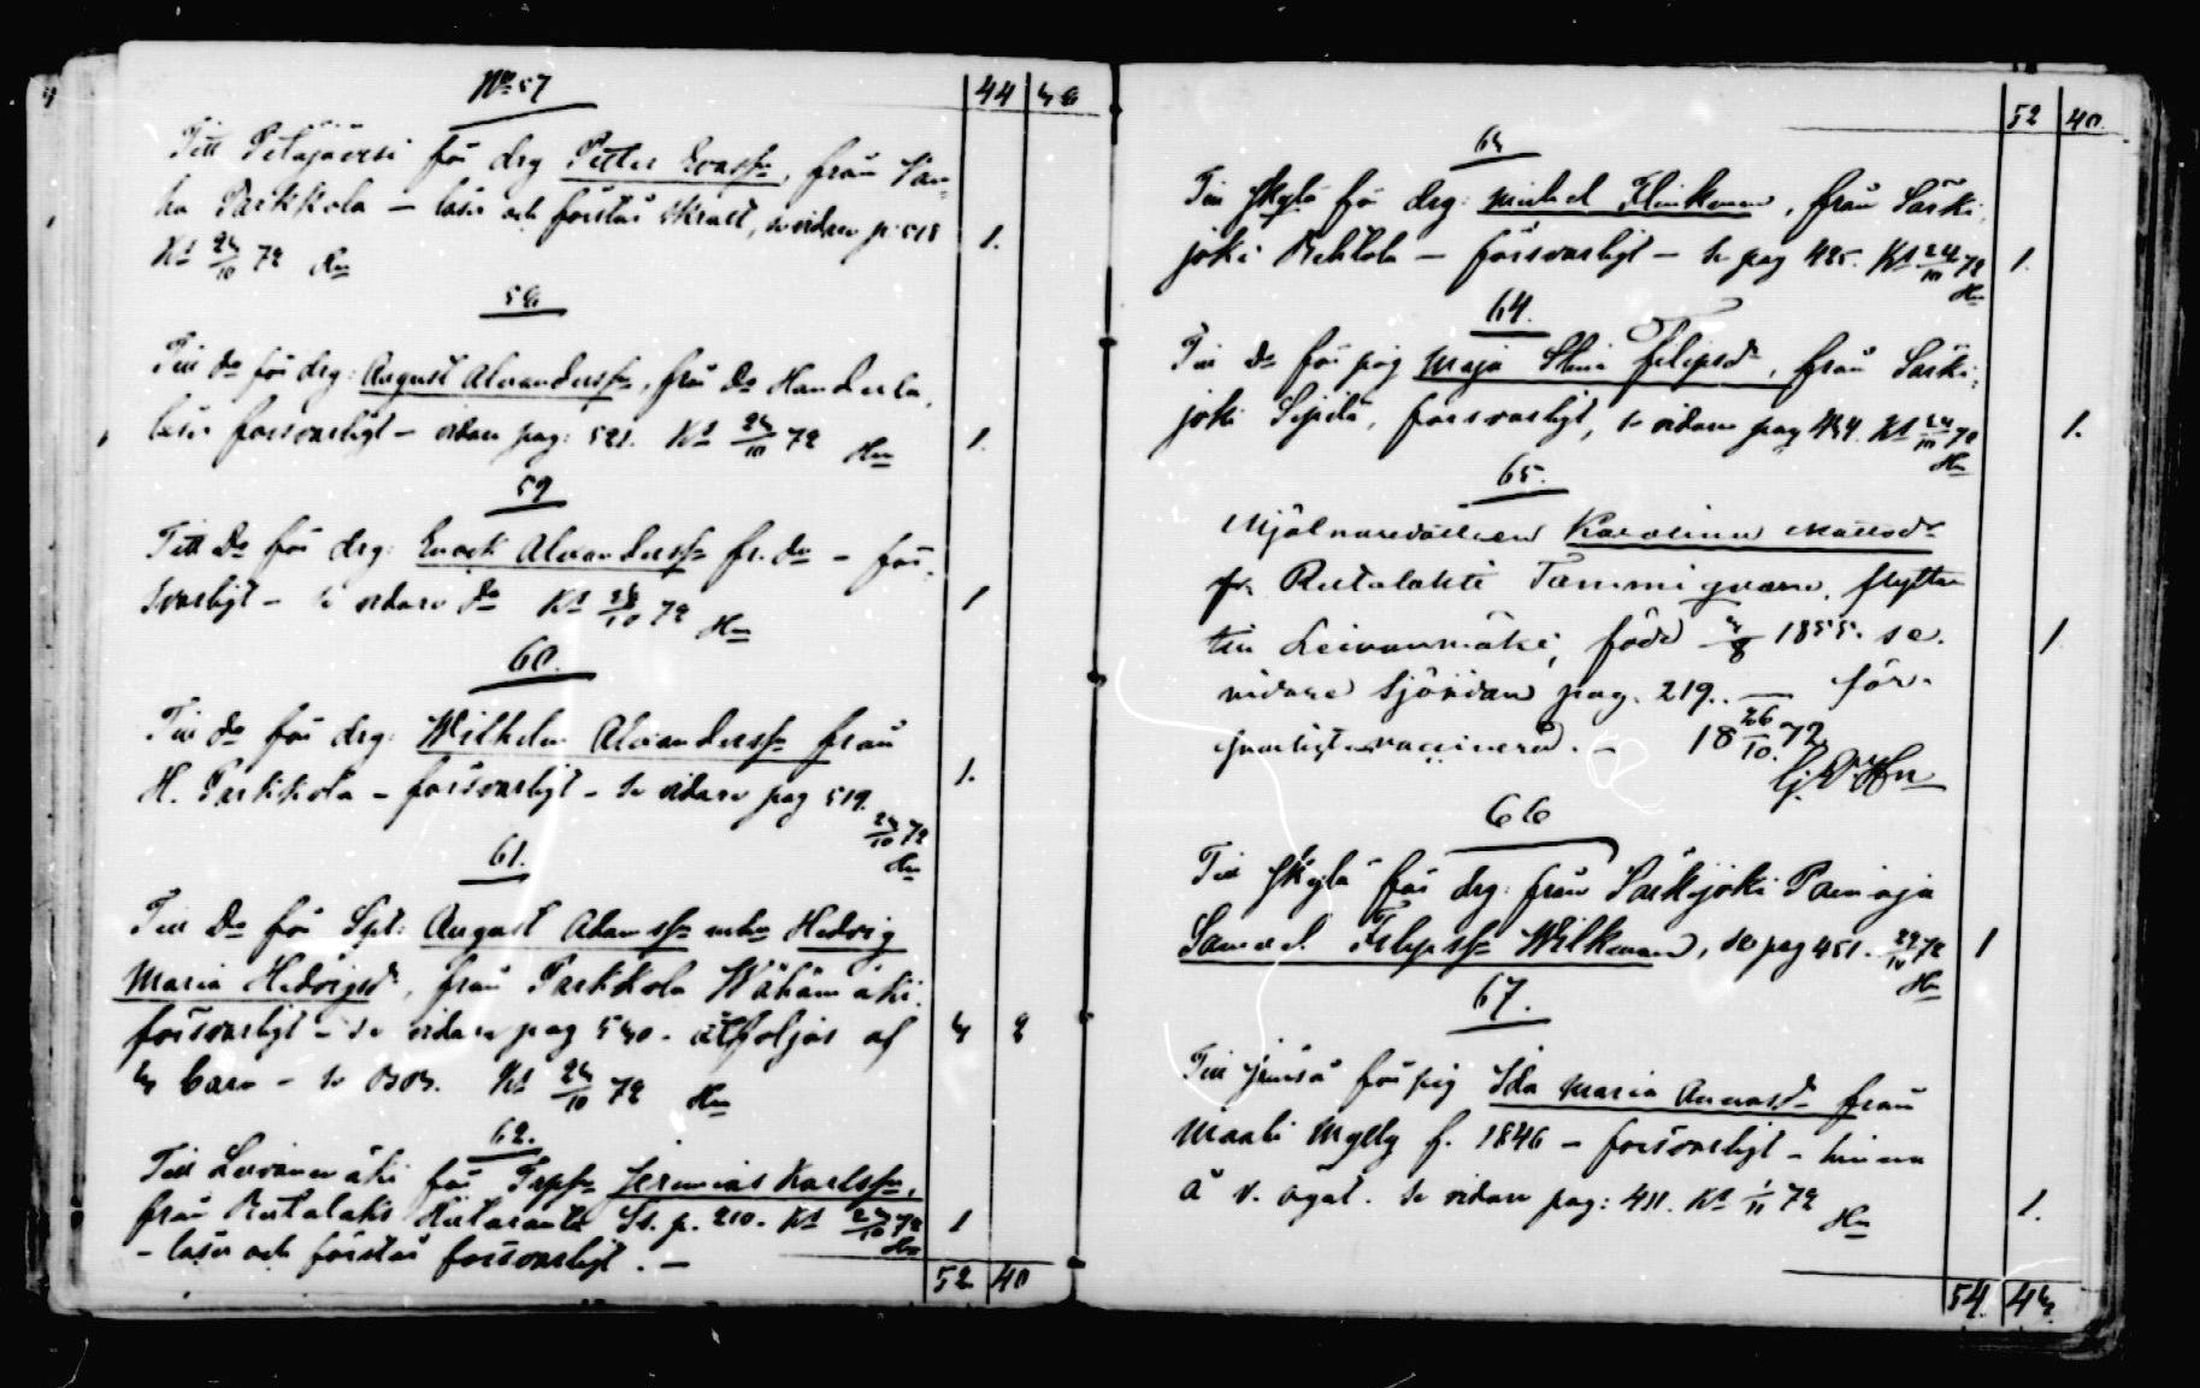 No 57
44 | 38
Till Petäjävesi för drg Petter Evasson, från Van-
ha Parkkola – läser och förstår skralt, se vidare p. 518
Kt 23/10 72 Hn
1.
58
Till Do för drg: August Alexandersson, från Do Handerla,
läser försvarligt – vidare pag: 521. Kt 23/10 72 Hn
1.
59
Till Do för drg: Enock Alexandersson fr. do – för-
svarligt – se vidare do Kt 23/10 72 Hn
1
60.
Till do för drg: Wilhelm Alexandersson från
H. Parkkola – försvarligt – se vidare pag 519.
23/10 72
Hn
1.
61.
Till Do för Spt: August Adamsson m. h. Hedvig
Maria Hedvigsd, från Parkkola Wähämäki.
försvarligt – se vidare pag 530. åtföljas af
3 barn – se
Kt 23/10 72 Hn
3 2
62.
Till Leivonmäki för Jeremias Karlsson,
från Rutalaks p. 210. Kt 23/10 72
Hn
– läser och förstår försvarligt. –
1
52 | 40
52 | 40.
63
Till Jkylä för drg: Michel Flinkman, från Särki-
joki Rekkola – försvarligt – se pag 425. Kt 24/10 72
Hn
1.
64.
Till Do för pig Maja Stina Filipsdr, från Särki-
joki Sepilä, försvarligt, se vidare pag 434. Kt 24/10 72
Hn
1.
65.
Mjölnaredottren Karolina Mattsdr
fr. Rutalahti Tammiqvarn, flyttar
till Leivonmäki, född 3/8 1855. se
vidare sjönidan pag. 219. — för-
svarligt vaccinerad. – 18 26/10 72.
1
66
Till Jkylä för drg: från Särkijoki Painaja
Samuel Filipsson Wilkman, se pag 451. 29/10 72
Hn
1
67.
Till Jämsä för pig Ida Maria Annasdr från
Maaki Mylly f. 1846 – försvarligt – hinna
å v. ögat. Se vidare pag: 411. Kt 1/11 72 Hn
1.
54. | 43.